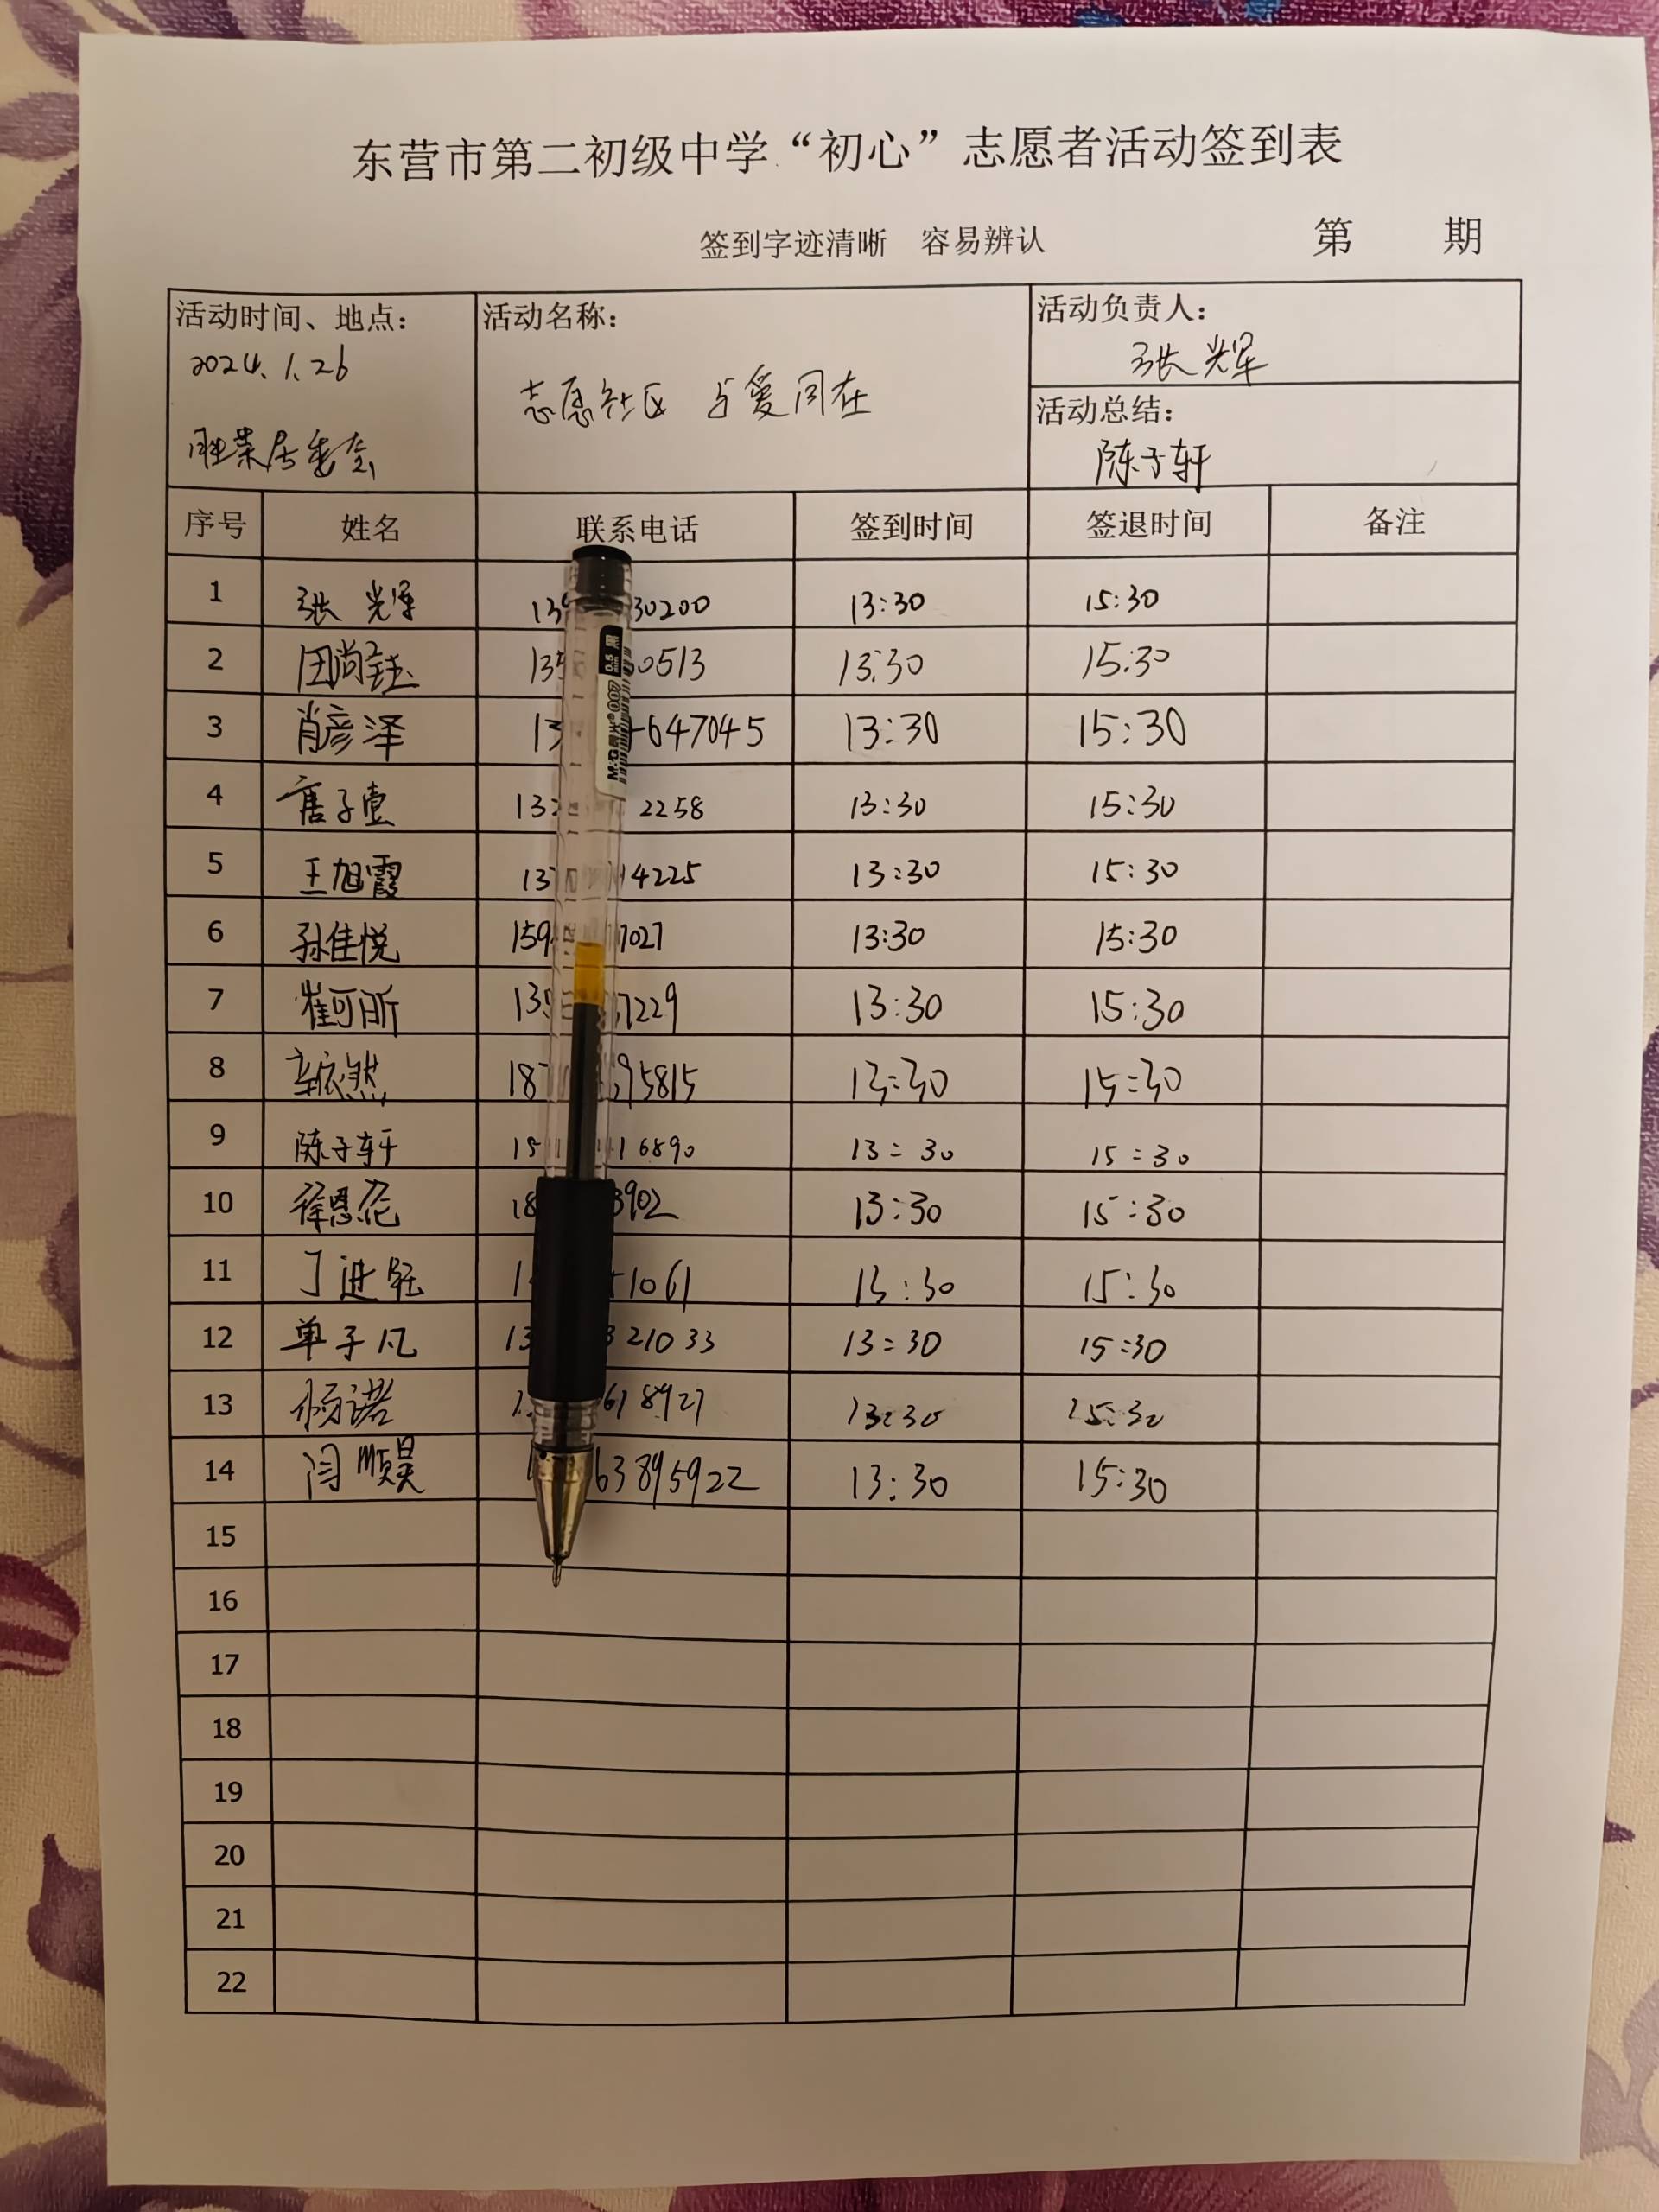 东营市第二初级中学“初心”志愿者活动签到表
签到字迹清晰 容易辨认 第 期
活动时间、地点： 活动名称： 活动负责人：
2024.1.26 张光军
志愿社区 与爱同在
活动总结：
胜荣居委会 陈子轩
序号 姓名 联系电话 签到时间 签退时间 备注
1 张 30200 13:30 15:30
2 田尚钰 0513 13:30 15:30
3 肖彦泽 13 647045 13:30 15:30
4 子壹 13 2258 13:30 15:30
5 王旭霞 13 14225 13:30 15:30
6 孙佳悦 159 7027 13:30 15:30
7 崔可昕 13 7229 13:30 15:30
8 辛依然 18 95815 13:30 15:30
9 陈子轩 15 16890 13:30 15:30
10 徐恩伦 18 3902 13:30 15:30
11 丁进 1061 13:30 15:30
12 单子凡 13 21033 13:30 15:30
13 杨诺 618927 13:30 15:30
14 闫顺昊 63895922 13:30 15:30
15
16
17
18
19
20
21
22
M&G 晨光 007 0.5